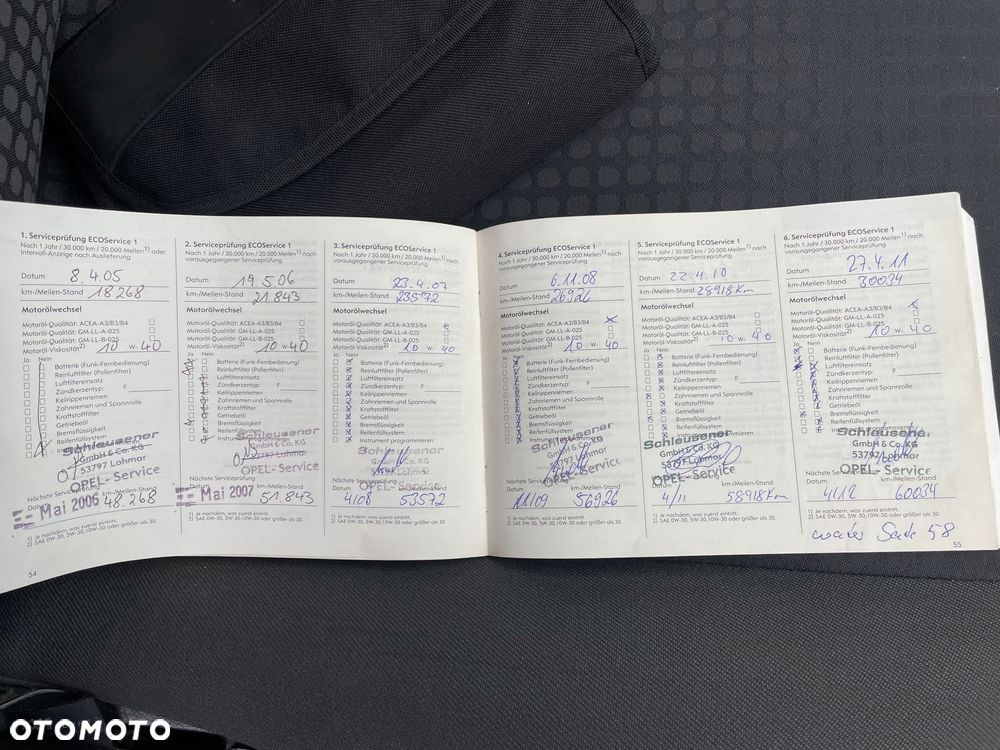 1. Serviceprüfung ECOService 1
Nach 1 Jahr / 30.000 km / 20.000 Meilen1) oder
Intervall-Anzeige nach Auslieferung
Datum 8.4.05
km-/Meilen-Stand 18268
Motorölwechsel
Motoröl-Qualität: ACEA-A3/B3/B4
Motoröl-Qualität: GM-LL-A-025
Motoröl-Qualität: GM-LL-B-025
Motoröl-Viskosität2) 10 w 40
Ja Nein
Batterie (Funk-Fernbedienung)
Reinluftfilter (Pollenfilter)
Luftfiltereinsatz
Zündkerzentyp: F
Keilrippenriemen
Zahnriemen und Spannrolle
Kraftstofffilter
Getriebeöl
Bremsflüssigkeit
Reifenfüllsystem
Schleusener
GmbH & Co. KG
53797 Lohmar
OPEL-Service
Nächste Serviceprüfung
km-/Meilen-Stand
Mai 2006 48.268
1) Je nachdem, was zuerst eintritt.
2) SAE 0W-30, 5W-30, 10W-30 oder größer als 30.
54
2. Serviceprüfung ECOService 1
Nach 1 Jahr / 30.000 km / 20.000 Meilen1) nach
vorausgegangener Serviceprüfung
Datum 19.5.06
km-/Meilen-Stand 21.843
Motorölwechsel
Motoröl-Qualität: ACEA-A3/B3/B4
Motoröl-Qualität: GM-LL-A-025
Motoröl-Qualität: GM-LL-B-025
Motoröl-Viskosität2) 10 w 40
Ja Nein
Batterie (Funk-Fernbedienung)
Reinluftfilter (Pollenfilter)
Luftfiltereinsatz
Zündkerzentyp: F
Keilrippenriemen
Zahnriemen und Spannrolle
Kraftstofffilter
Getriebeöl
Bremsflüssigkeit
Reifenfüllsystem
Schleusener
GmbH & Co. KG
53797 Lohmar
OPEL-Service
Nächste Serviceprüfung
km-/Meilen-Stand
Mai 2007 51.843
1) Je nachdem, was zuerst eintritt.
2) SAE 0W-30, 5W-30, 10W-30 oder größer als 30.
3. Serviceprüfung ECOService 1
Nach 1 Jahr / 30.000 km / 20.000 Meilen1) nach
vorausgegangener Serviceprüfung
Datum 23.4.07
km-/Meilen-Stand 23572
Motorölwechsel
Motoröl-Qualität: ACEA-A3/B3/B4
Motoröl-Qualität: GM-LL-A-025
Motoröl-Qualität: GM-LL-B-025
Motoröl-Viskosität2) 10 w. 40
Ja Nein
Batterie (Funk-Fernbedienung)
Reinluftfilter (Pollenfilter)
Luftfiltereinsatz
Zündkerzentyp: F
Keilrippenriemen
Zahnriemen und Spannrolle
Kraftstofffilter
Getriebeöl
Bremsflüssigkeit
Reifenfüllsystem
Instrument programmieren
Schleusener
GmbH & Co. KG
Lohmar
OPEL-Service
Nächste Serviceprüfung
Datum km-/Meilen-Stand
4/08 53572
1) Je nachdem, was zuerst eintritt.
2) SAE 0W-30, 5W-30, 10W-30 oder größer als 30.
4. Serviceprüfung ECOService 1
Nach 1 Jahr / 30.000 km / 20.000 Meilen1) nach
vorausgegangener Serviceprüfung
Datum 6.11.08
km-/Meilen-Stand 26926
Motorölwechsel
Motoröl-Qualität: ACEA-A3/B3/B4
Motoröl-Qualität: GM-LL-A-025
Motoröl-Qualität: GM-LL-B-025
Motoröl-Viskosität2) 10 w. 40
Ja Nein
Batterie (Funk-Fernbedienung)
Reinluftfilter (Pollenfilter)
Luftfiltereinsatz
Zündkerzentyp: F
Keilrippenriemen
Zahnriemen und Spannrolle
Kraftstofffilter
Getriebeöl
Bremsflüssigkeit
Reifenfüllsystem
Schleusener
GmbH & Co. KG
OPEL-Service
Nächste Serviceprüfung
Datum km-/Meilen-Stand
11/09 56926
1) Je nachdem, was zuerst eintritt.
2) SAE 0W-30, 5W-30, 10W-30 oder größer als 30.
5. Serviceprüfung ECOService 1
Nach 1 Jahr / 30.000 km / 20.000 Meilen1) nach
vorausgegangener Serviceprüfung
Datum 22.4.10
km-/Meilen-Stand 28918 Km
Motorölwechsel
Motoröl-Qualität: ACEA-A3/B3/B4
Motoröl-Qualität: GM-LL-A-025
Motoröl-Qualität: GM-LL-B-025
Motoröl-Viskosität2) 10 w. 40
Ja Nein
Batterie (Funk-Fernbedienung)
Reinluftfilter (Pollenfilter)
Luftfiltereinsatz
Zündkerzentyp: F
Keilrippenriemen
Zahnriemen und Spannrolle
Kraftstofffilter
Getriebeöl
Bremsflüssigkeit
Reifenfüllsystem
Schleusener
GmbH & Co. KG
OPEL-Service
Nächste Serviceprüfung
Datum km-/Meilen-Stand
4/11 58918 Km
1) Je nachdem, was zuerst eintritt.
2) SAE 0W-30, 5W-30, 10W-30 oder größer als 30.
6. Serviceprüfung ECOService 1
Nach 1 Jahr / 30.000 km / 20.000 Meilen1) nach
vorausgegangener Serviceprüfung
Datum 27.4.11
km-/Meilen-Stand 30034
Motorölwechsel
Motoröl-Qualität: ACEA-A3/B3/B4
Motoröl-Qualität: GM-LL-A-025
Motoröl-Qualität: GM-LL-B-025
Motoröl-Viskosität2) 10 w. 40
Ja Nein
Batterie (Funk-Fernbedienung)
Reinluftfilter (Pollenfilter)
Luftfiltereinsatz
Zündkerzentyp: F
Keilrippenriemen
Zahnriemen und Spannrolle
Kraftstofffilter
Getriebeöl
Bremsflüssigkeit
Reifenfüllsystem
Schleusener
GmbH & Co. KG
53797 Lohmar
OPEL-Service
Nächste Serviceprüfung
Datum km-/Meilen-Stand
4/12 60034
1) Je nachdem, was zuerst eintritt.
2) SAE 0W-30, 5W-30, 10W-30 oder größer als 30.
58
55
OTOMOTO